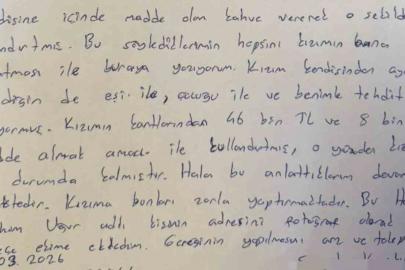 disine içinde madde olan kahve vererek o şekilde
ndırtmış. Bu söylediklerimin hepsini kızımın bana
atması ile buraya yazıyorum. Kızım kendisinden ay
dığın de eşi ile, çocuğu ile ve benimle tehdit
yormuş. Kızımın kartlarından 46 bin TL ve 8 bin
de almak amacı ile kullandırtmış, o yüzden kı
durumda kalmıştır. Hala bu anlattıklarım devam
ktedir. Kızıma bunları zorla yaptırmaktadır. Bu
Uğur adlı kişinin adresini fotoğraf olarak
ekime ekledim. Gereğinin yapılmasını arz ve talep
03.2026